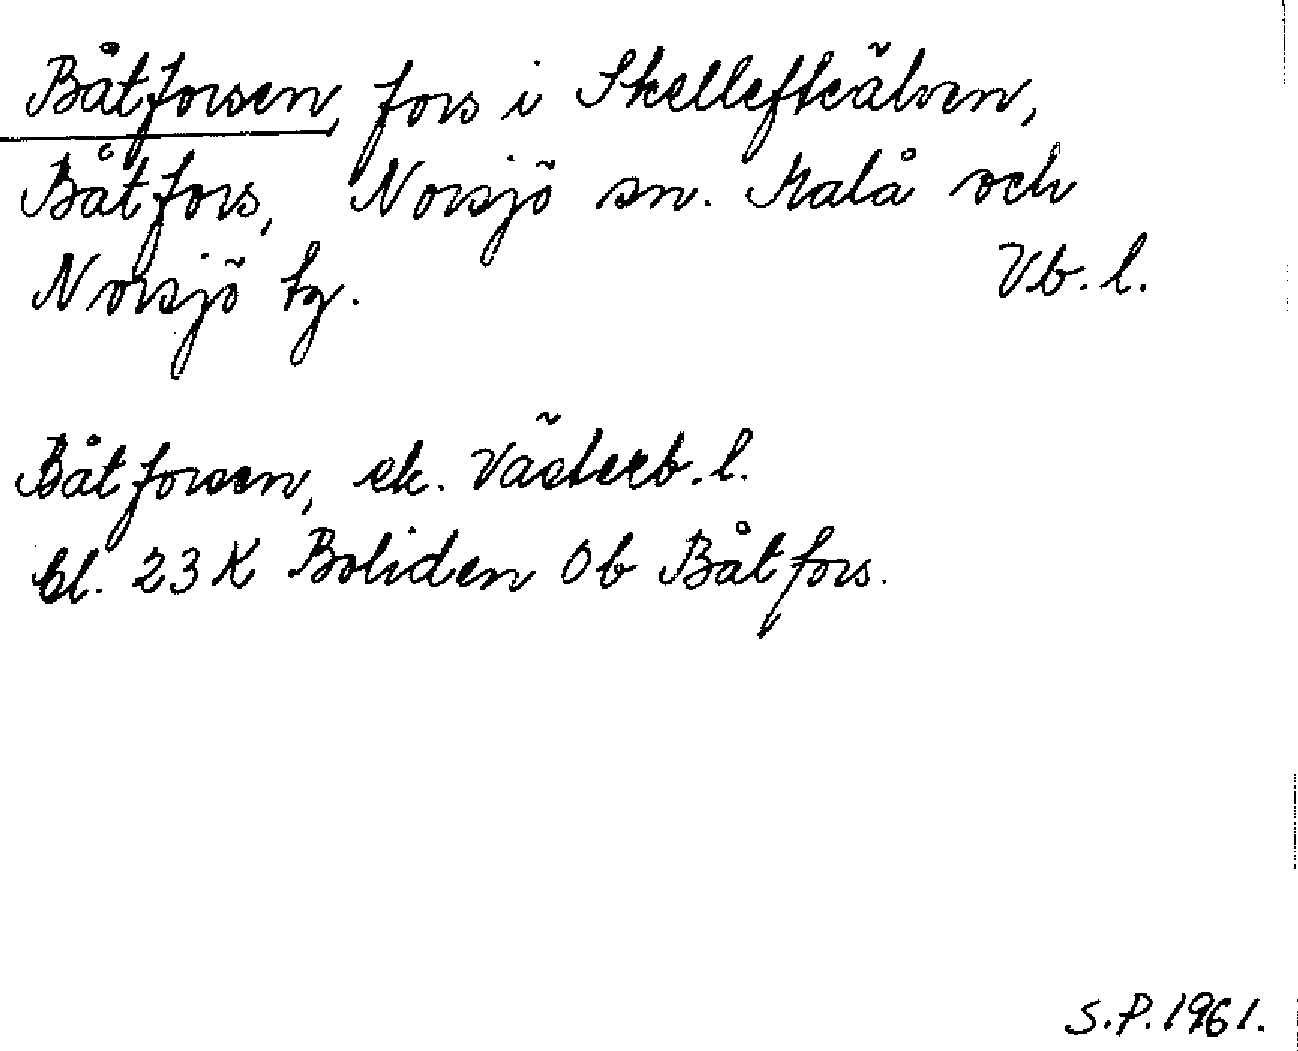 Båtforsen, fors i Skellefteälven,
Båtfors, Norsjö sn. Malå och
Norsjö tg. Vb. l.
Båtforsen, ek. Västerb. l.
bl. 23 K Boliden 0b Båtfors.
S.P. 1961.